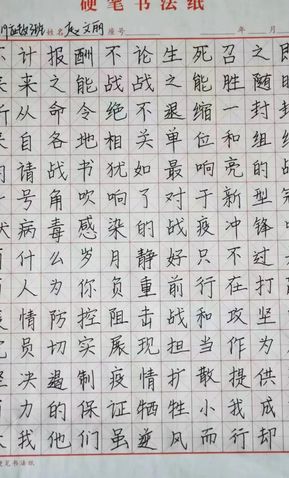 硬笔书法纸
姓名 文丽 座号 年 月
计报酬不论生死召之即
来之能战战之能胜随
从命令绝不退缩一封封
自各地相关单位和组
请战书犹如最响亮的战
号角吹响了对于新型冠
病毒感染的战疫冲锋
什么岁月静好只不过
人为你负重前行在打
情防控阻击战和攻坚
员切实展现担当作为
决遏制疫情扩散提供
力的保证牺牲小我成
我他们虽逆风而行却
硬笔书法纸